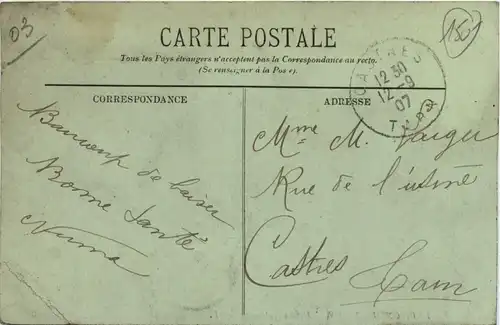 03
1501
CARTE POSTALE
Tous les Pays étrangers n'acceptent pas la Correspondance au recto.
(Se renseigner à la Poste).
CASTRES
12 30
12-9
07
TARN
CORRESPONDANCE
ADRESSE
Beaucoup de baiser
Bonne Santé
Numa
Mme M.
Rue de l'usine
Castres Tarn